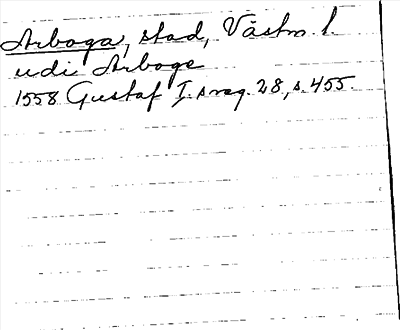 Arboga, stad, Västm. l.
udi Arboge
1558 Gustaf I:s reg. 28, s. 455.